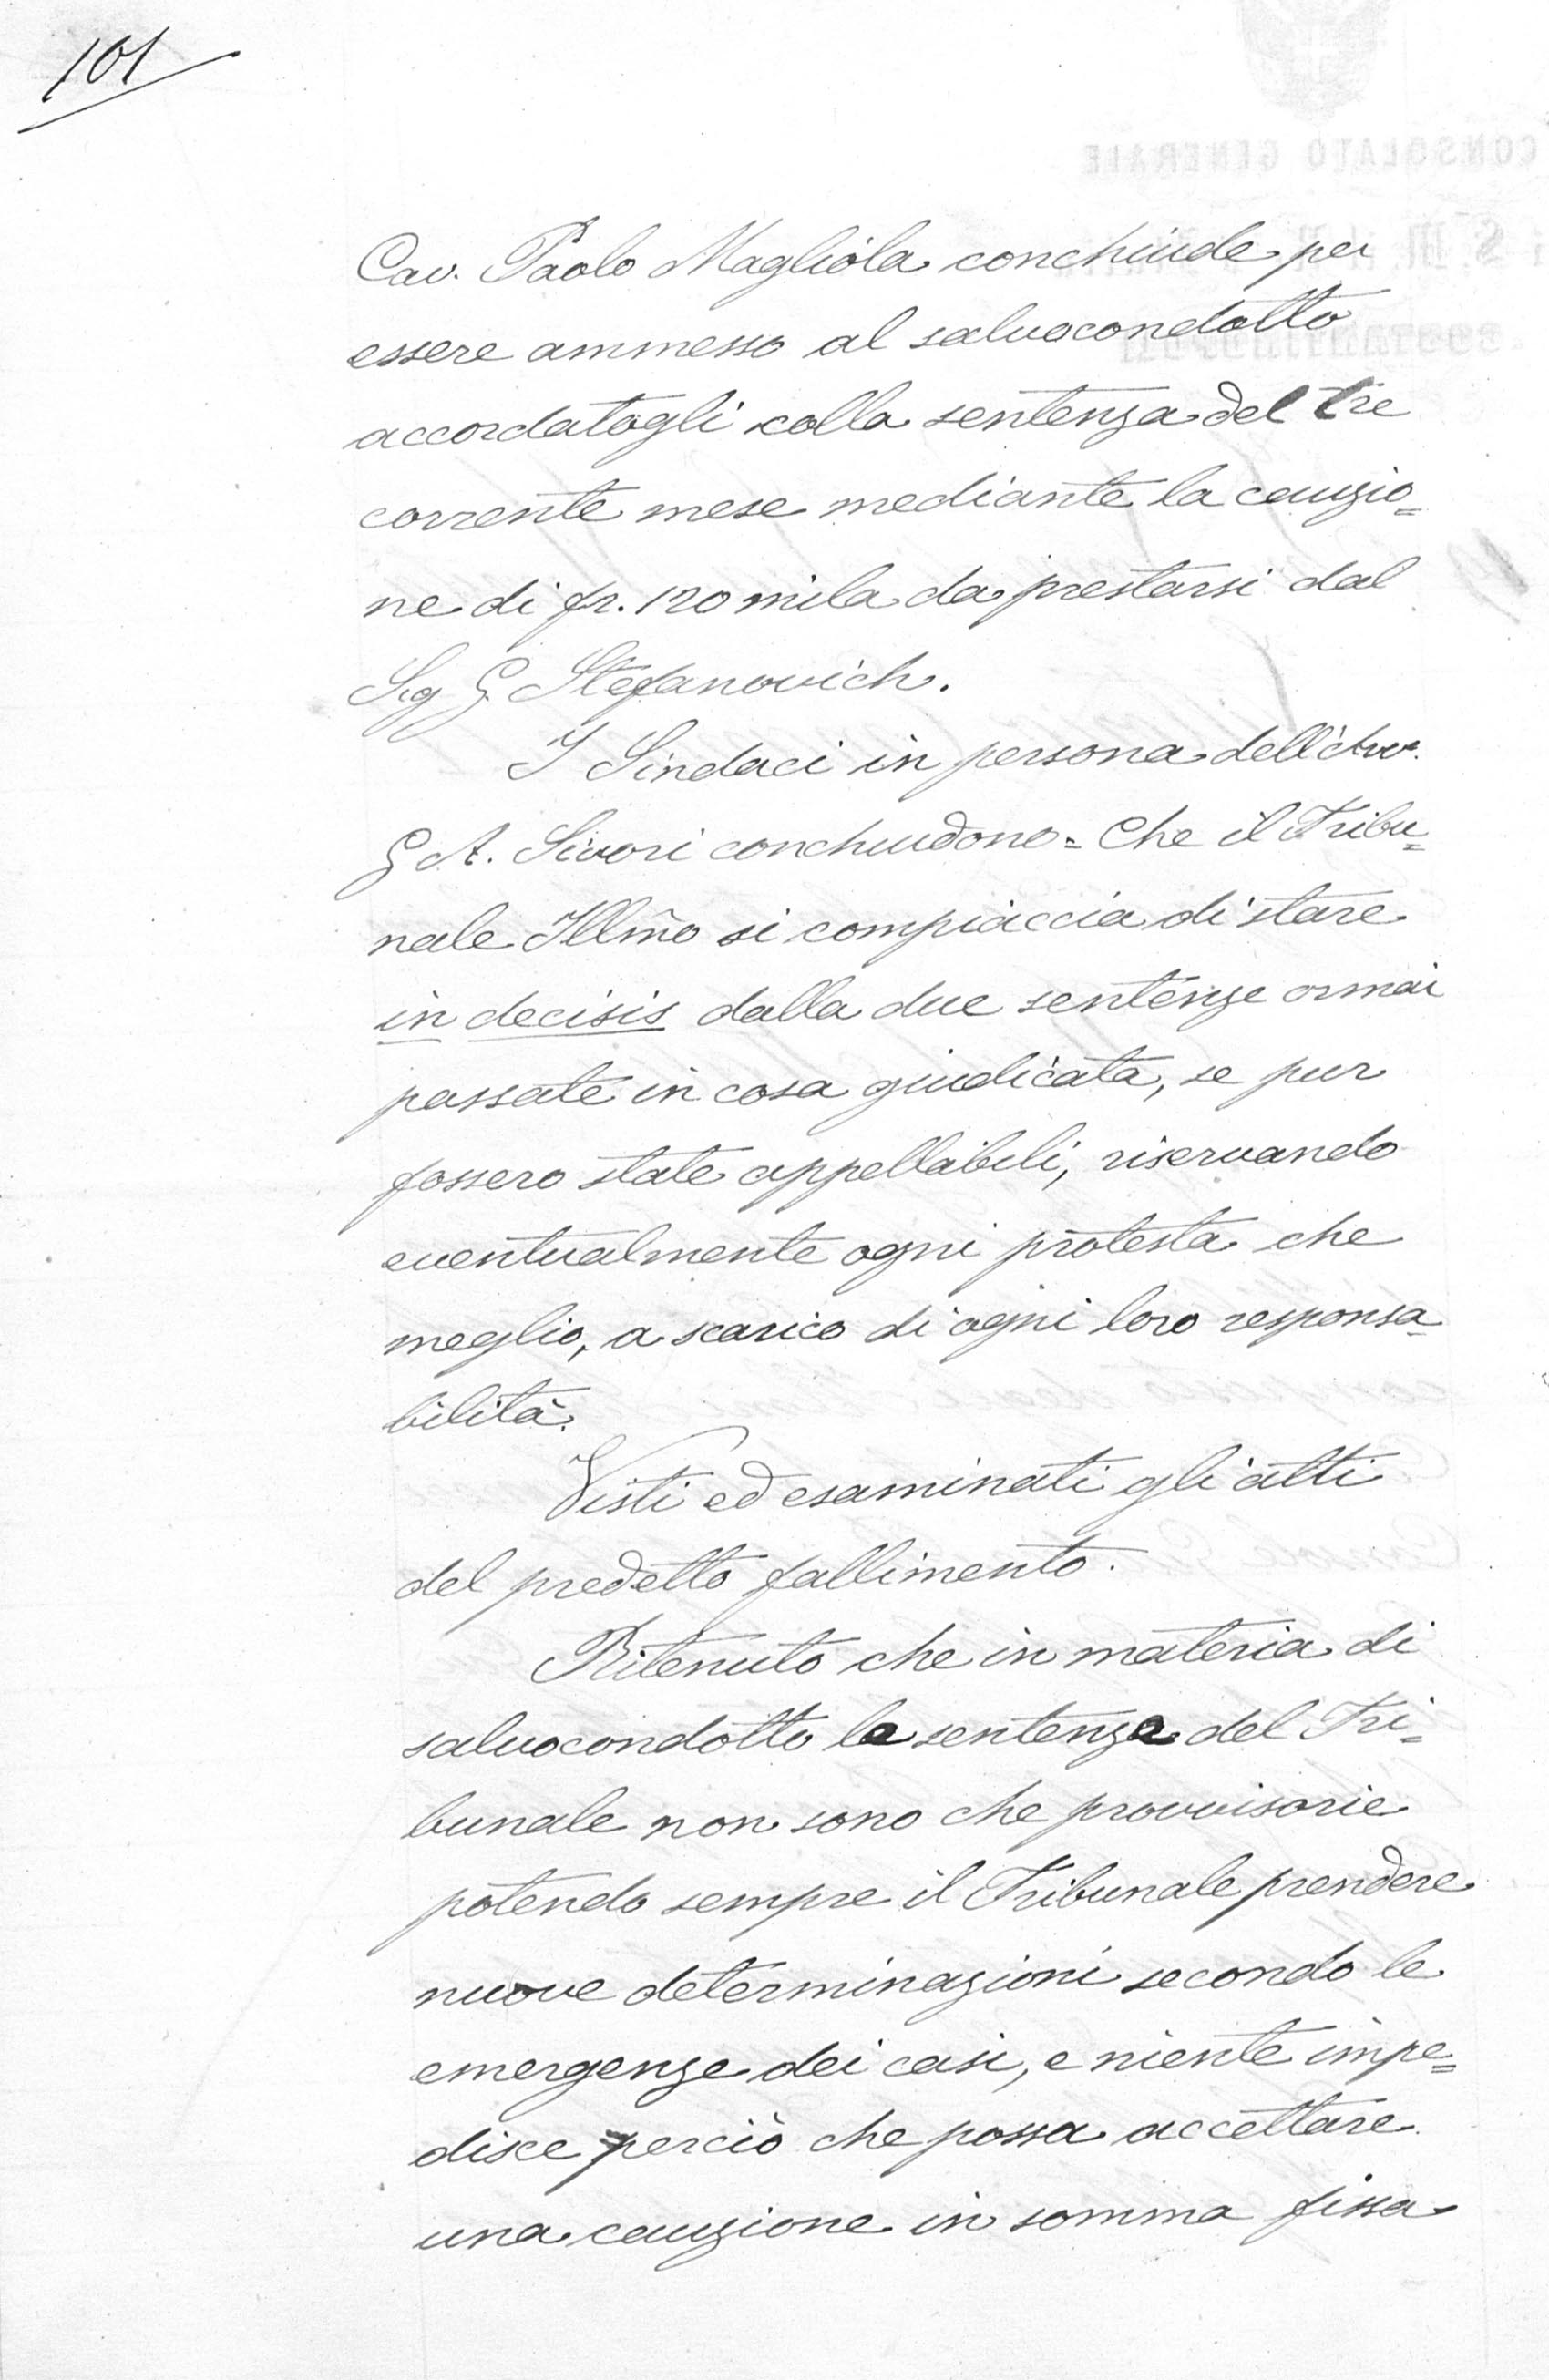 101
Cav. Paolo Magliola conchiude per
essere ammesso al salvocondotto
accordatogli colla sentenza del tre
corrente mese mediante la cauzio=
ne di fr. 120 mila da prestarsi dal
Sig G Stefanovich.
I Sindaci in persona dell'Avv.
G A. Sivori conchiudono = Che il Tribu=
nale Illm̃o si compiaccia di stare
in decisis dalla due sentenze ormai
passate in cosa giudicata, se pur
fossero state appellabili, riservando
eventualmente ogni protesta che
meglio, a scarico di ogni loro responsa=
bilità.
Visti ed esaminati gli atti
del predetto fallimento.
Ritenuto che in materia di
salvocondotto le sentenze del Tri=
bunale non sono che provvisorie
potendo sempre il Tribunale prendere
nuove determinazioni secondo le
emergenze dei casi, e niente impe=
disce perciò che possa accettare
una cauzione in somma fissa
CONSOLATO GENERALE